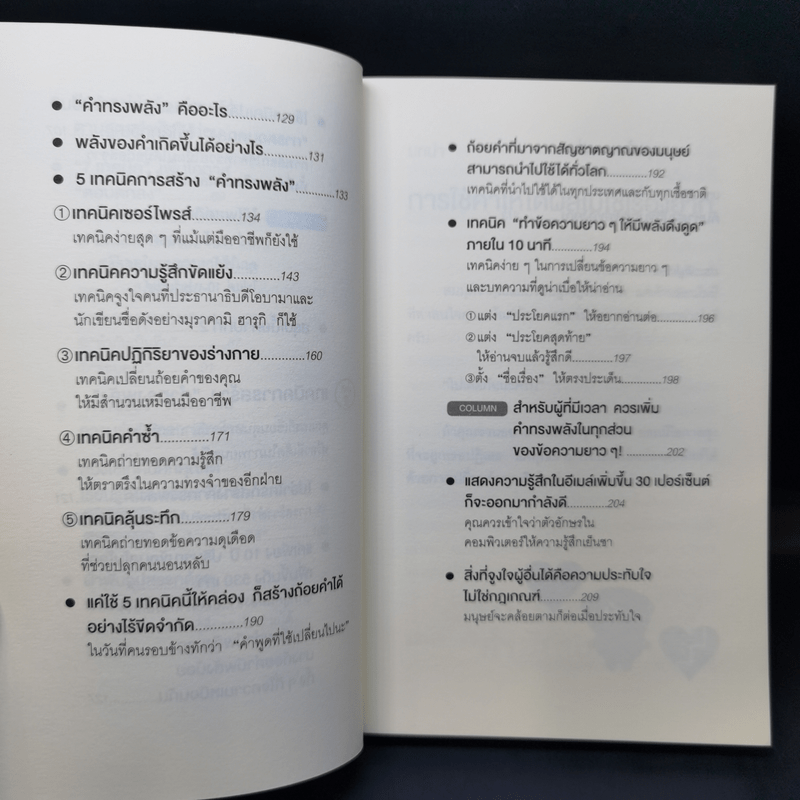 ● “คำทรงพลัง” คืออะไร.............129
● พลังของคำเกิดขึ้นได้อย่างไร............131
● 5 เทคนิคการสร้าง “คำทรงพลัง”............133
①เทคนิคเซอร์ไพรส์.............134
เทคนิคง่ายสุด ๆ ที่แม้แต่มืออาชีพก็ยังใช้
②เทคนิคความรู้สึกขัดแย้ง............143
เทคนิคจูงใจคนที่ประธานาธิบดีโอบามาและ
นักเขียนชื่อดังอย่างมุราคามิ ฮารุกิ ก็ใช้
③เทคนิคปฏิกิริยาของร่างกาย............160
เทคนิคเปลี่ยนถ้อยคำของคุณ
ให้มีสำนวนเหมือนมืออาชีพ
④เทคนิคคำซ้ำ.............171
เทคนิคถ่ายทอดความรู้สึก
ให้ตราตรึงในความทรงจำของอีกฝ่าย
⑤เทคนิคลุ้นระทึก.............179
เทคนิคถ่ายทอดข้อความดุเดือด
ที่ช่วยปลุกคนนอนหลับ
● แค่ใช้ 5 เทคนิคนี้ให้คล่อง ก็สร้างถ้อยคำได้
อย่างไร้ขีดจำกัด.............190
ในวันที่คนรอบข้างทักว่า “คำพูดที่ใช้เปลี่ยนไปนะ”
● ถ้อยคำที่มาจากสัญชาตญาณของมนุษย์
สามารถนำไปใช้ได้ทั่วโลก............192
เทคนิคที่นำไปใช้ได้ในทุกประเทศและกับทุกเชื้อชาติ
● เทคนิค “ทำข้อความยาว ๆ ให้มีพลังดึงดูด”
ภายใน 10 นาที.............194
เทคนิคง่าย ๆ ในการเปลี่ยนข้อความยาว ๆ
และบทความที่ดูน่าเบื่อให้น่าอ่าน
①แต่ง “ประโยคแรก” ให้อยากอ่านต่อ.............196
②แต่ง “ประโยคสุดท้าย”
ให้อ่านจบแล้วรู้สึกดี.............197
③ตั้ง “ชื่อเรื่อง” ให้ตรงประเด็น.............198
COLUMN สำหรับผู้ที่มีเวลา ควรเพิ่ม
คำทรงพลังในทุกส่วน
ของข้อความยาว ๆ!.............202
● แสดงความรู้สึกในอีเมล์เพิ่มขึ้น 30 เปอร์เซ็นต์
ก็จะออกมากำลังดี.............204
คุณควรเข้าใจว่าตัวอักษรใน
คอมพิวเตอร์ให้ความรู้สึกเย็นชา
● สิ่งที่จูงใจผู้อื่นได้คือความประทับใจ
ไม่ใช่กฎเกณฑ์.............209
มนุษย์จะคล้อยตามก็ต่อเมื่อประทับใจ